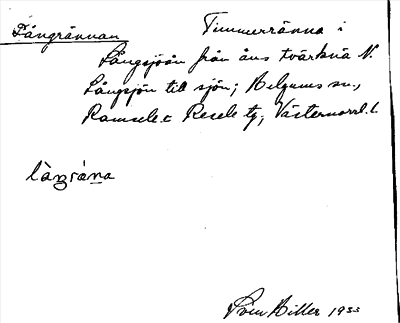 Långrännan Timmerränna i
Långsjöån från åns tvärknä N.
Långsjön till sjön; Helgums sn.,
Ramsele o. Resele tg., Västernorrl. l.
làŋrána
Sven Hiller 1933